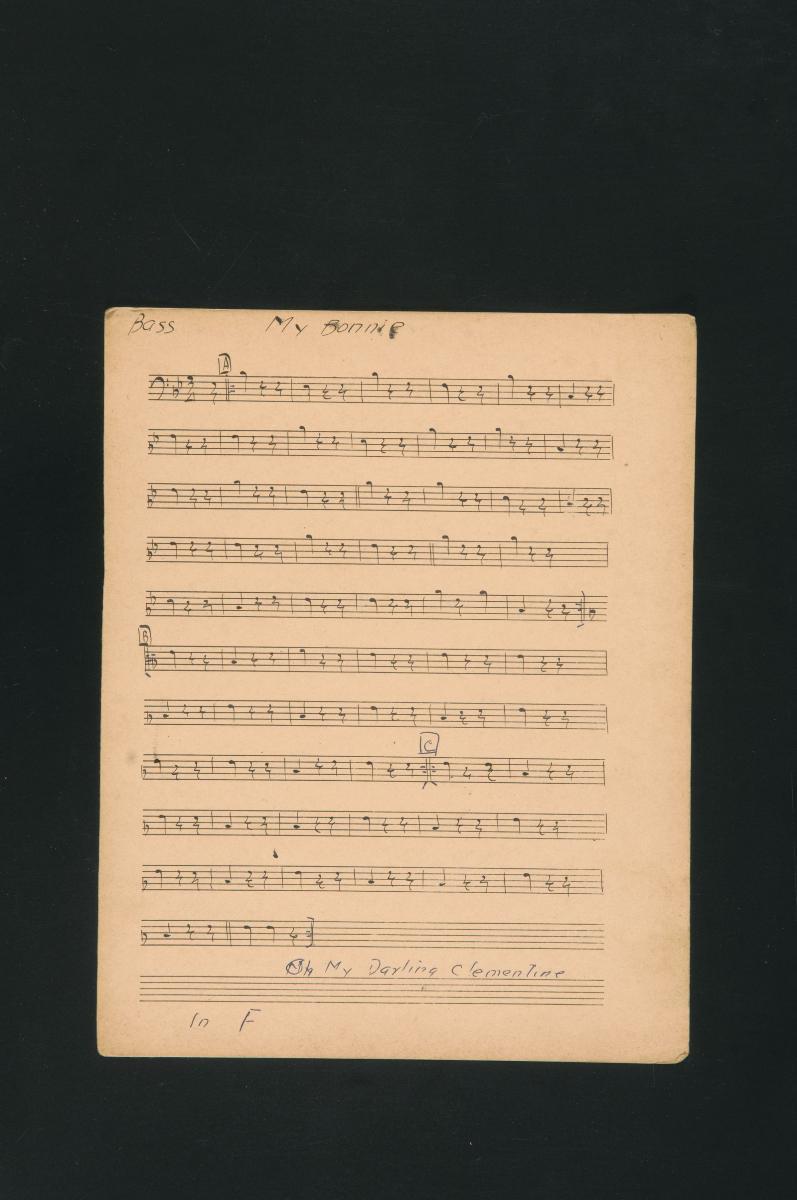 Bass My Bonnie
A
B
C
Oh My Darling Clementine
In F